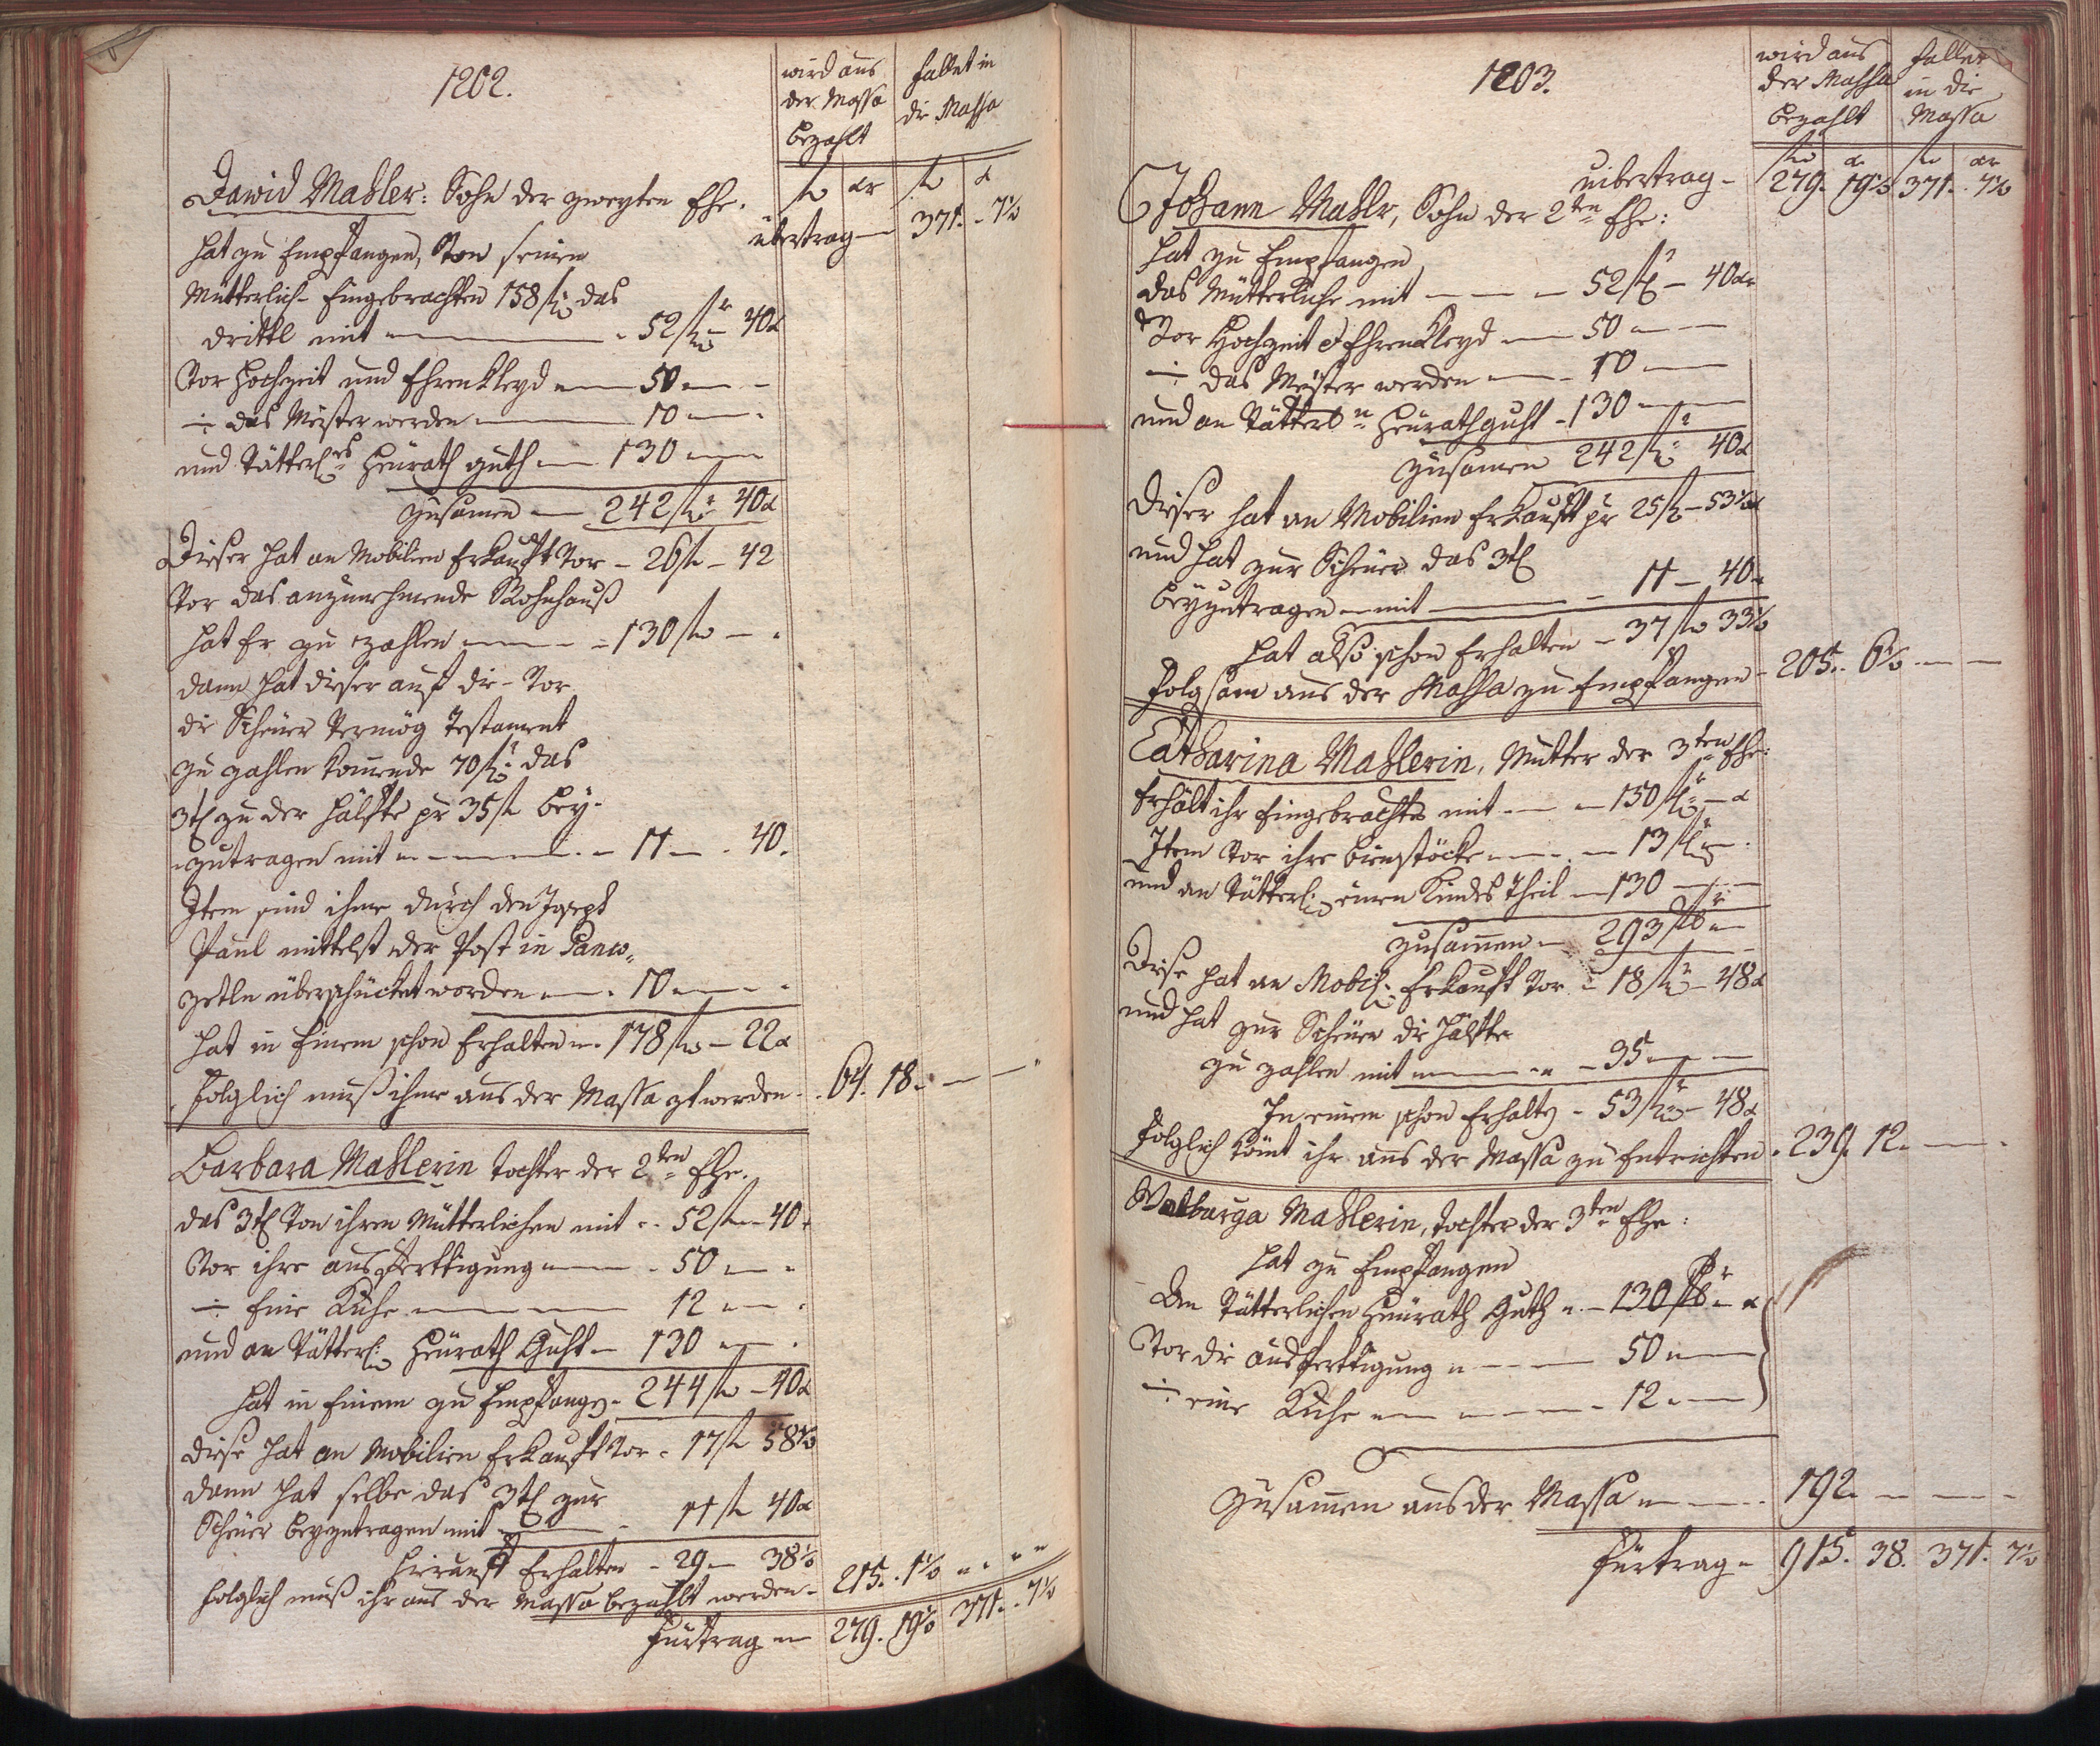 1202.
wird aus der Massa bezahlt
fallet in die Massa
fl xr fl x
übertrag — 371. - 7½
David Mahler: Sohn der zweyten Ehe.
hat zu Empfangen, Von seinem
Mütterlich- Eingebrachten 158 fl: das
drittl mit — 52 fl - 40 x
Vor Hochzeit und Ehrenkleyd — 50 —
÷ das Meister werden — 10 —
und Vätterl:es Heürath guth — 130 —
Zusamen — 242 fl 40 x
Dieser hat an Mobilien Erkauft Vor - 26 fl - 42
Vor das anzunehmende Wohnhauß
hat Er zu zahlen — 130 fl —
dann hat dieser auf die - Vor
die Scheuer Vermög Testament
zu zahlen komende 70 fl: das
3tl zu der Hälfte pr 35 fl bey-
zutragen mit — 11 — 40.
Item sind ihme durch den Joseph
Paul mittelst der Post in Panco-
zetln überschücket worden — 10 —
hat in Einem schon Erhalten — 178 fl - 22 x
folglich muß ihme aus der Massa zt werden — 64. 18. —
Barbara Mahlerin tochter der 2ten Ehe.
das 3tl Von ihren Mütterlichen mit - 52 fl - 40
Vor ihre ausferttigung — 50 —
÷ Eine Kuhe — 12 —
und an Vätterl: Heürath Guht — 130 —
hat in Einem zu Empfangen - 244 fl - 40 x
diese hat an Mobilien Erkauft Vor - 17 fl 58½
dann hat selbe das 3tl zur
Scheuer beyzutragen mit — 11 fl 40 x
hierauf Erhalten - 29 — 38½
folglich muß ihr aus der Massa bezahlt werden - 215. 1½ —
Fürtrag — 279. 19½ 371. 7½
1203.
wird aus der Massa bezahlt
fallet in die Massa
fl x fl xr
uibertrag - 279. 19½ 371. 7½
Johann Mahlr, Sohn der 2ten Ehe:
hat zu Empfangen
das Mütterliche mit — 52 fl - 40 xr
Vor Hochzeit & Ehrenkleyd — 50 —
÷ das Meister werden — 10 —
und an Vätterl:n Heürathguht - 130 —
Zusamen 242 fl 40 x
Dieser hat an Mobilien Erkauft pr 25 fl - 53½ x
und hat zur Scheuer das 3tl
beyzutragen mit — 11 — 40
hat also schon Erhalten - 37 fl 33½
folgsam aus der Massa zu Empfangen - 205. 6½ —
Catharina Mahlerin, Mutter der 3ten Ehe:
Erhält ihr Eingebrachtes mit — 150 fl: - x
Item Vor ihre bienstöcke — 13 fl —
und an Vätterl: einen Kindes Theil — 130 —
Zusammen — 293 fl —
Diese hat an Mobil: Erkauft Vor - 18 fl - 48 x
und hat zur Scheuer die Hälfte
zu zahlen mit — 35 —
In einem schon Erhalten - 53 fl - 48 x
folglich kömt ihr aus der Massa zu Entrichten - 239. 12. —
Walburga Mahlerin, tochter der 3ten Ehe:
hat zu Empfangen
An Vätterlichen Heürath Guth — 130 fl - x
Vor die ausferttigung — 50 —
÷ eine Kuhe — 12 —
Zusammen aus der Massa — 192. —
Fürtrag - 915. 38. 371. 7½